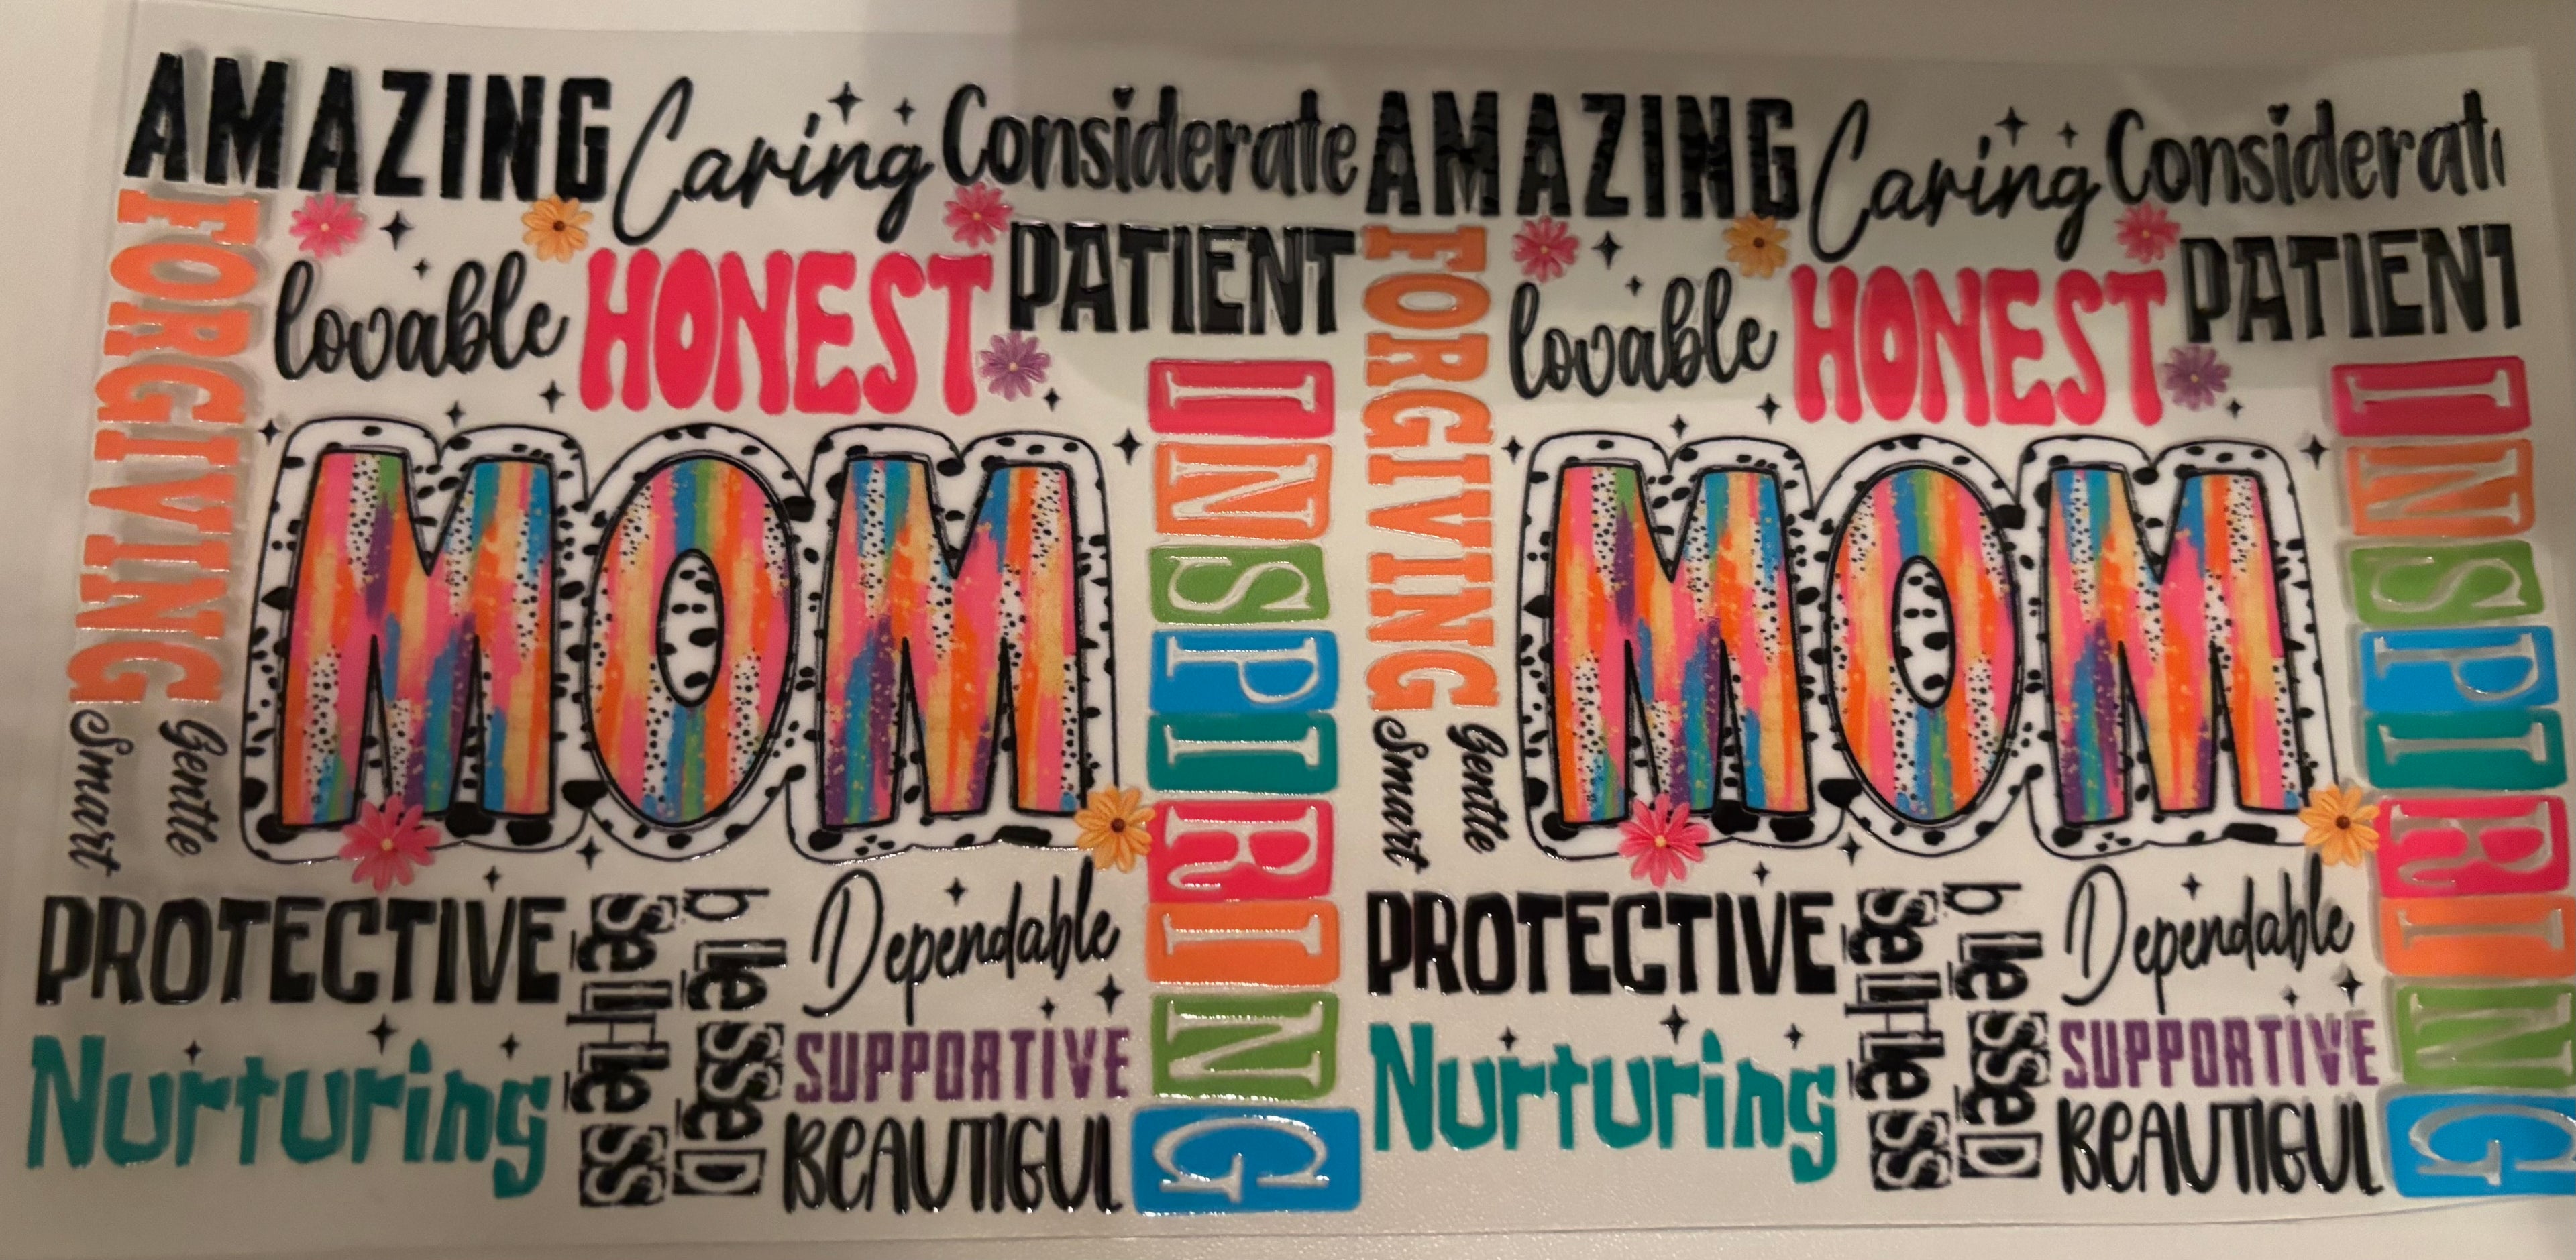 AMAZING Caring Considerate
FORGIVING
lovable HONEST PATIENT
MOM
INSPIRING
Smart
Gentle
PROTECTIVE
selfless
blesseD
Dependable
Nurturing
SUPPORTIVE
BeAUTIGUL
AMAZING Caring Considerat
FORGIVING
lovable HONEST PATIENT
MOM
INSPIRING
Smart
Gentle
PROTECTIVE
selfless
blesseD
Dependable
Nurturing
SUPPORTIVE
BeAUTIGUL